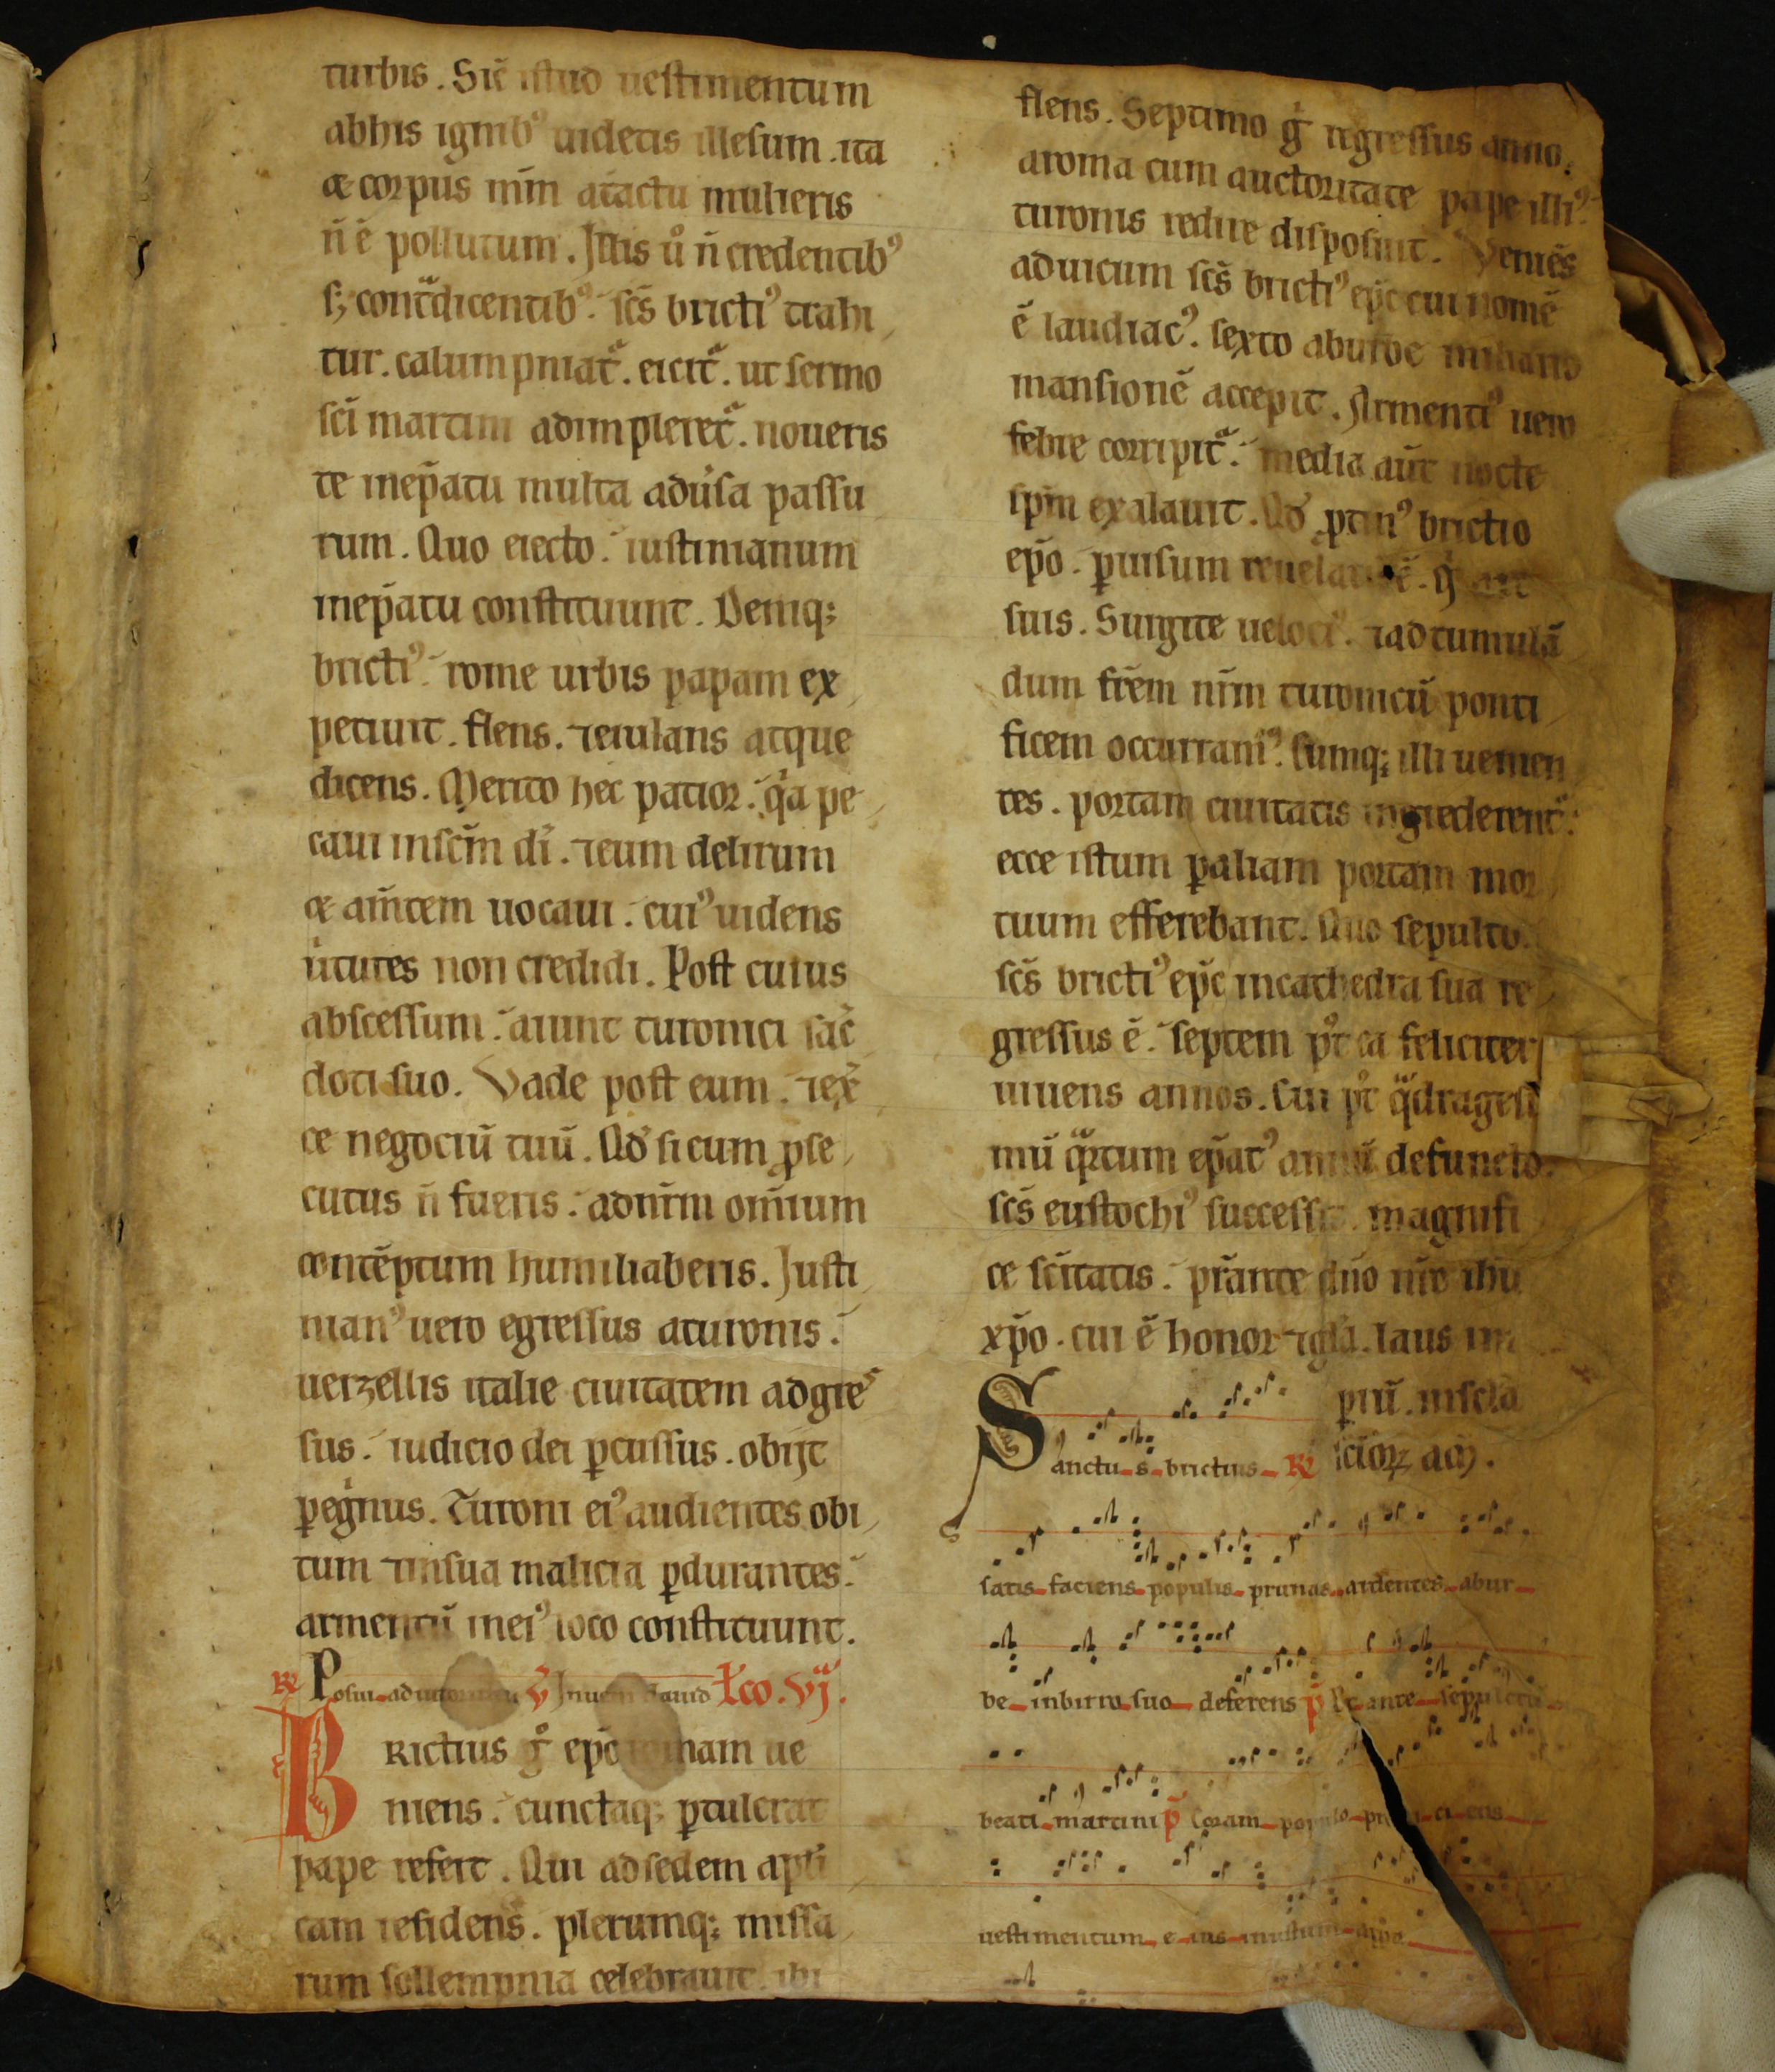 turbis. Sic̄ istud uestimentum
abhis ignibꝰ uidetis illesum. ita
& corpus nr̄m at̄actu mulieris
n̄ ē pollutum. Illis ů n̄ credentibꝰ
sꝫ cont̄dicentibꝰ. sc̄s brictiꝰ trahi
tur. calumpniat᷑. eicit᷑. ut sermo
sc̄i martini adimpleret᷑. noueris
te inep̄atu multa adūsa passu
rum. Quo eiecto. iustinianum
inep̄atu constituunt. Deniqꝫ
brictiꝰ rome urbis papam ex
petiuit. flens. ⁊eiulans atque
dicens. Merito hec patior. qͥa pe
caui insc̄m dī. ⁊eum delirum
& am̄tem uocaui. cuiꝰ uidens
ūtutes non credidi. Post cuius
abscessum. aiunt turonici sac̄
doti suo. Vade post eum. ⁊ex̄
ce negociū tuū. Qd̓ si eum ꝓse
cutus n̄ fueris. adnr̄m om̄ium
contēptum humiliaberis. Justi
nianꝰ uero egressus aturonis.
uerzellis italie ciuitatem adgres
sus. iudicio dei ꝑcussus. obijt
ꝑegͥnus. Turoni eiꝰ audientes obi
tum ⁊insua malicia ꝑdurantes.
armentiū ineiꝰ loco constituunt.
℞ Posui adiutorium ℣ Inueni dauid Lc̄o. Vj.
Brictius gͦ ep̄c romam ue
niens. cunctaqꝫ ꝑtulerat
pape refert. Qui adsedem apl̄i
cam residens. plerumqꝫ missa
rum sollempnia celebrauit. ibi
flens. Septimo gͦ regressus anno.
aroma cum auctoritate pape illiꝰ.
turonis redire disposuit. Veniēs
aduicum sc̄s brictiꝰ ep̄c cui nomē
ē laudiacꝰ. sexto aburbe miliario
mansionē accepit. Armentiꝰ uero
febre corripit᷑. media aūt nocte
sp̄m exalauit. Qd̓ ꝓtinꝰ brictio
ep̄o. ꝑuisum reuelatū ē. qͥ ait
suis. Surgite uelociꝰ. ⁊adtumulā
dum fr̄em nr̄m turonicū ponti
ficem occurramꝰ. Cumqꝫ illi uenien
tes. portam ciuitatis ingrederent᷑.
ecce istum ꝑaliam portam mor
tuum efferebant. Quo sepulto.
sc̄s brictiꝰ ep̄c incathedra sua re
gressus ē. septem pͦt ea feliciter
uiuens annos. Cui pͦt qͣdragesi
mū qͣrtum ep̄atꝰ annū defuncto.
sc̄s eustochiꝰ successit. magnifi
ce sc̄itatis. pr̄ante dn̄o nr̄o ih̄u
xp̄o. cui ē honor ⁊gl̄a. laus im
ꝑiū. inscl̄a
scl̄oꝝ am̄.
Sanctus brictius ℞
satis faciens populis prunas ardentes abur
be inbirro suo deferens ꝑ Et ante sepulcrū
beati martini ꝑ̄ Coram populo proiciens
uestimentum eius inustum